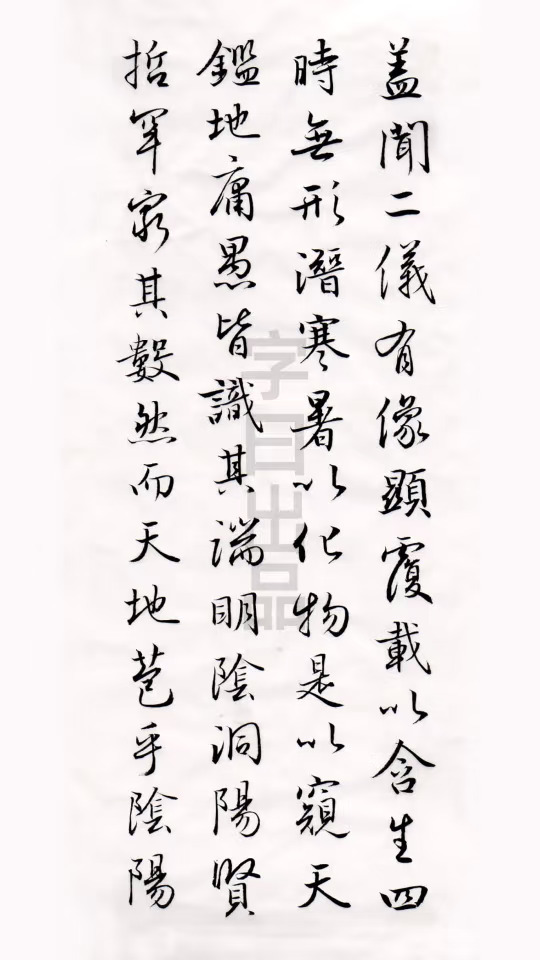 蓋聞二儀有像顯覆載以含生四
時無形潛寒暑以化物是以窺天
鑑地庸愚皆識其端明陰洞陽賢
哲罕窮其數然而天地苞乎陰陽
字曰出品